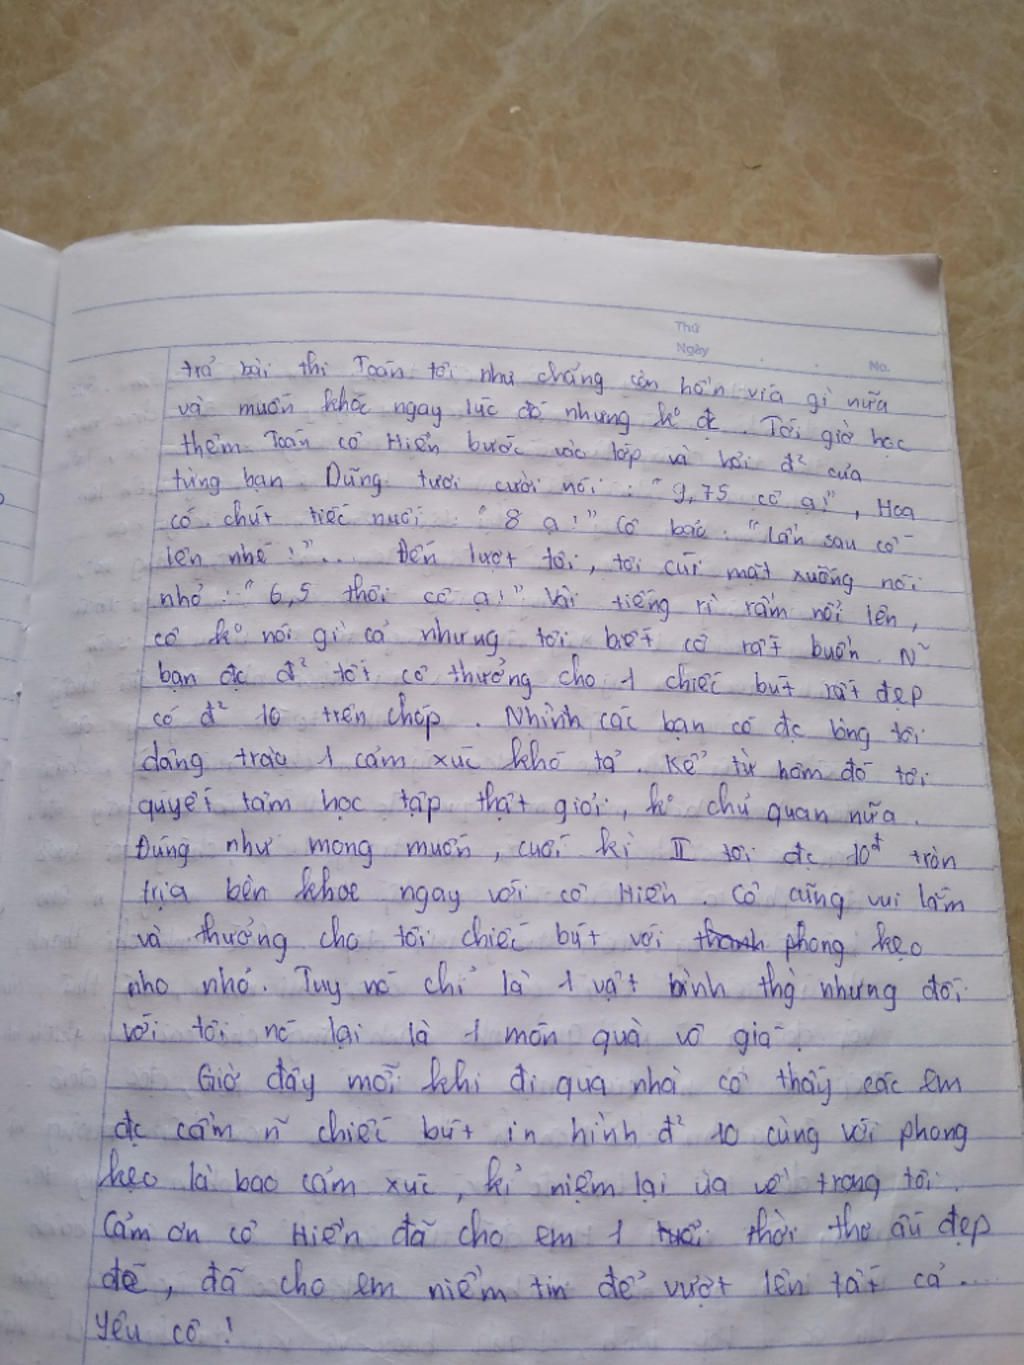 Thứ
Ngày
No.
trả bài thi Toán tôi như chẳng còn hồn vía gì nữa
và muốn khóc ngay lúc đó nhưng k° đc. Tới giờ học
thêm Toán cô Hiền bước vào lớp và hỏi đ² của
từng bạn. Dũng tươi cười nói: "9,75 cô ạ!", Hoa
có chút tiếc nuối: "8 ạ!" Cô bảo: "lần sau cố
lên nhé!"... Đến lượt tôi, tôi cúi mặt xuống nói
nhỏ: "6,5 thôi cô ạ!" Vài tiếng rì rầm nổi lên,
cô k° nói gì cả nhưng tôi biết cô rất buồn. N~
bạn đc đ² tốt cô thưởng cho 1 chiếc bút rất đẹp
có đ² 10 trên chóp. Nhình các bạn có đc lòng tôi
dâng trào 1 cảm xúc khó tả. Kể từ hôm đó tôi
quyết tâm học tập thật giỏi, k° chủ quan nữa.
Đúng như mong muốn, cuối kì II tôi đc 10đ tròn
trịa bèn khoe ngay với cô Hiền. Cô cũng vui lắm
và thưởng cho tôi chiếc bút với thanh phong kẹo
nho nhỏ. Tuy nó chỉ là 1 vật bình thg nhưng đối
với tôi nó lại là 1 món quà vô giá.
Giờ đây mỗi khi đi qua nhà cô thấy các em
đc cầm n~ chiếc bút in hình đ² 10 cùng với phong
kẹo là bao cảm xúc, kỉ niệm lại ùa về trong tôi.
Cảm ơn cô Hiền đã cho em 1 tuổi thời thơ ấu đẹp
đẽ, đã cho em niềm tin để vượt lên tất cả....
Yêu cô!